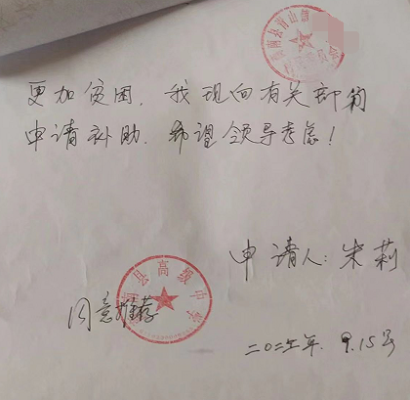 更加贫困，我现向有关部门
申请补助，希望领导考虑！
申请人：朱莉
县高级中学
同意推荐
9.15号